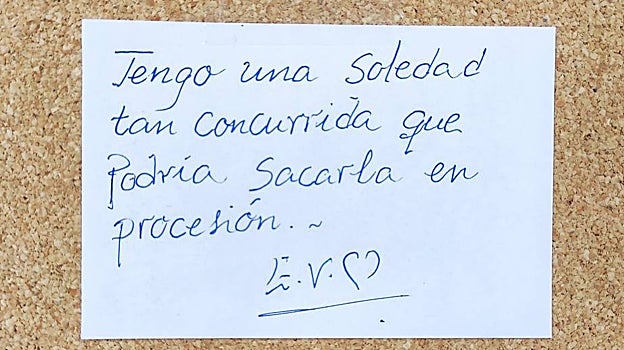 Tengo una Soledad
tan concurrida que
Podría Sacarla en
procesión. ~
E.V.